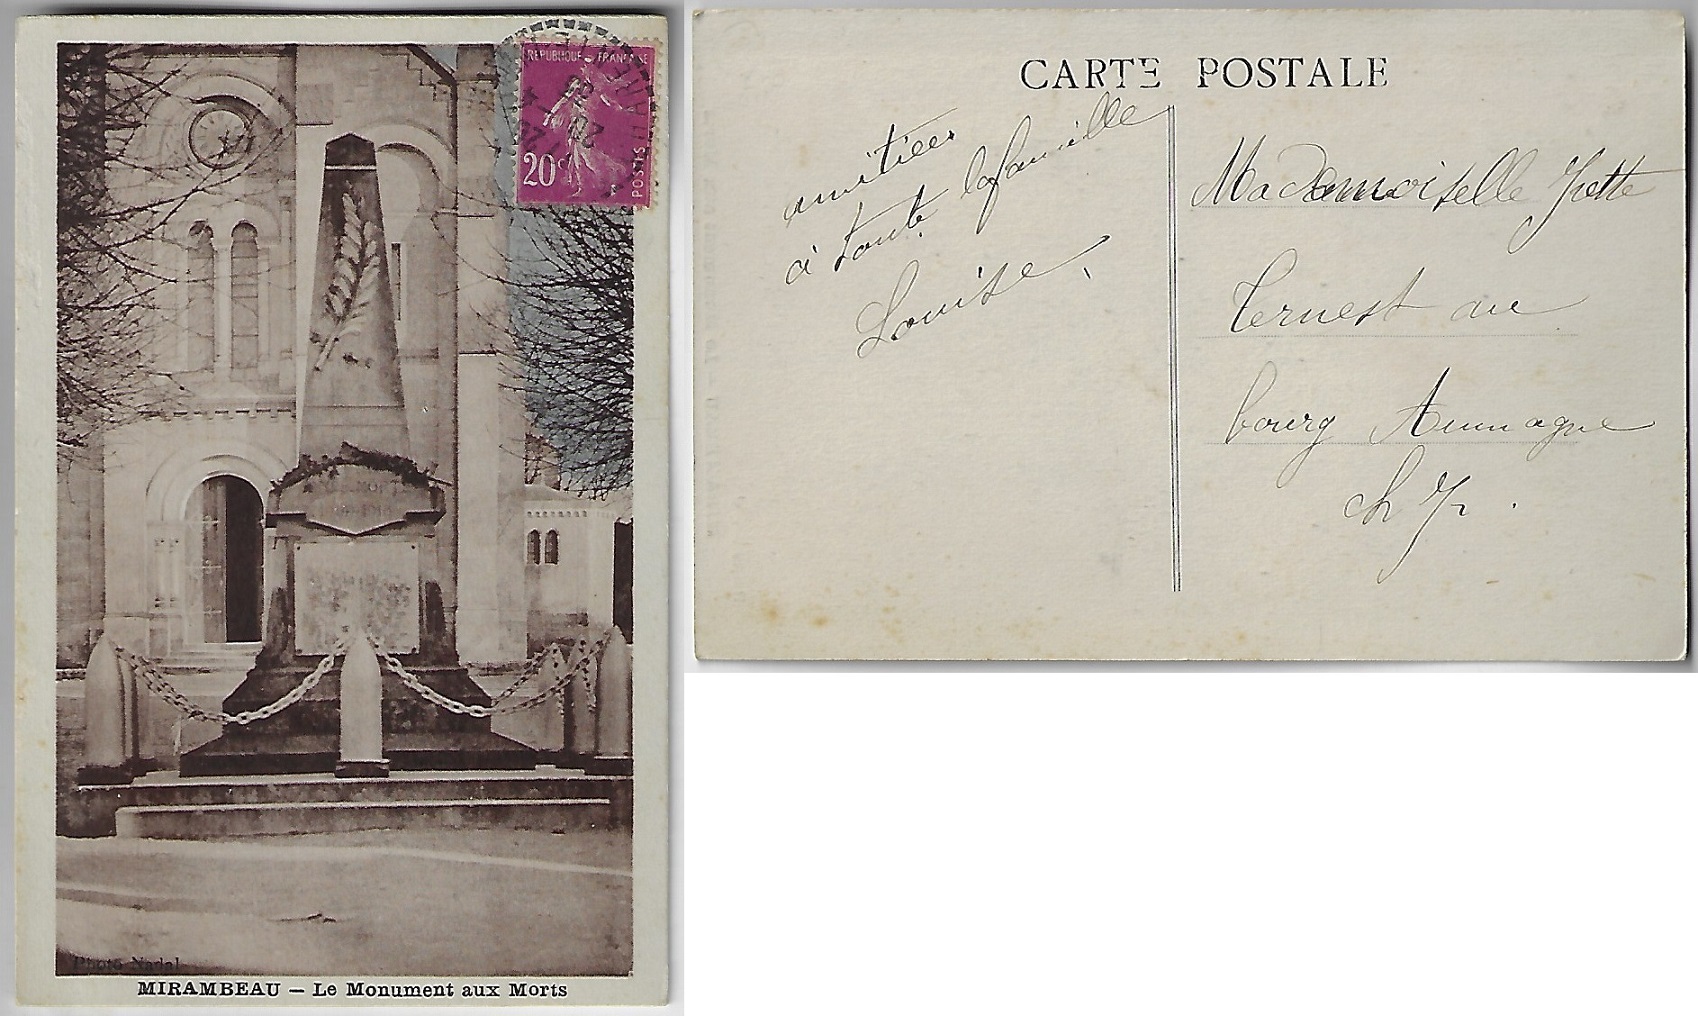 REPUBLIQUE FRANÇAISE
20c
POSTES
Photo Nadal
MIRAMBEAU — Le Monument aux Morts
CARTE POSTALE
amitiées
à toute la famille
Louise
Mademoiselle Yvette
Ternest au
bourg Aumagne
ch Ir.